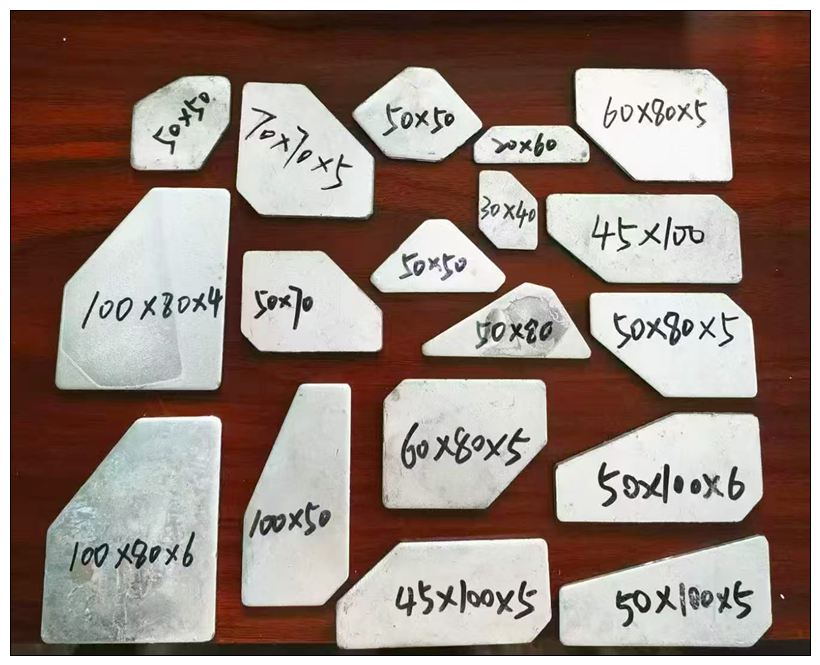 50x50
70x70x5
50x50
20x60
60x80x5
30x40
45x100
100x80x4
50x70
50x50
50x80
50x80x5
60x80x5
50x100x6
100x80x6
100x50
45x100x5
50x100x5